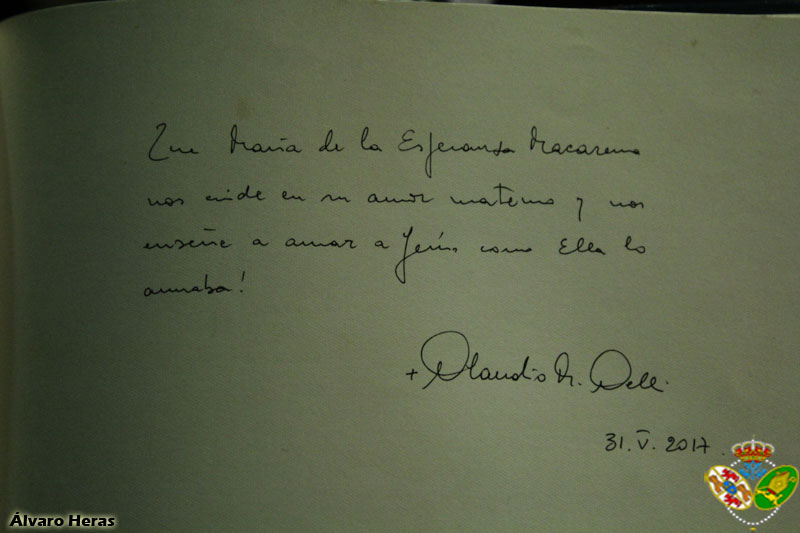 Que María de la Esperanza Macarena
nos cuide en su amor materno y nos
enseñe a amar a Jesús como Ella lo
amaba!
+ Claudio M. Celli
31.V.2017
Álvaro Heras